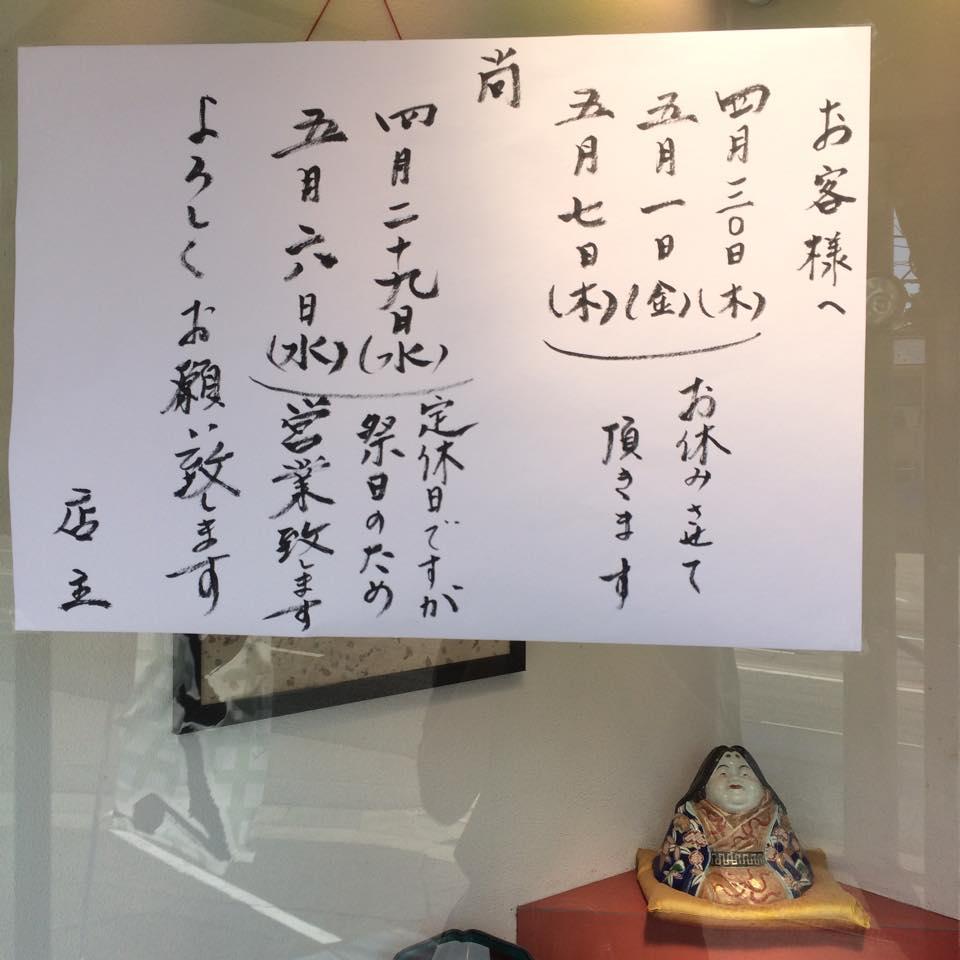 お客様へ
四月三〇日(木)
五月一日(金)
五月七日(木)
お休みさせて
頂きます
尚
四月二十九日(水)
五月六日(水)
定休日ですが
祭日のため
営業致します
よろしくお願い致します
店主